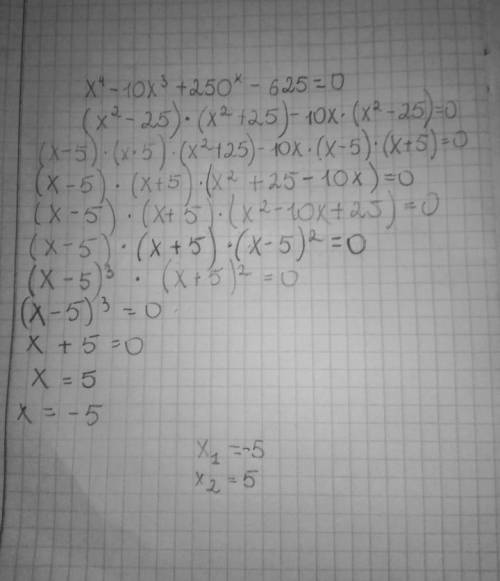 x⁴ - 10x³ + 250ˣ - 625 = 0
(x² - 25) · (x² + 25) - 10x · (x² - 25) = 0
(x - 5) · (x · 5) · (x² + 25) - 10x · (x - 5) · (x + 5) = 0
(x - 5) · (x + 5) · (x² + 25 - 10x) = 0
(x - 5) · (x + 5) · (x² - 10x + 25) = 0
(x - 5) · (x + 5) · (x - 5)² = 0
(x - 5)³ · (x + 5)² = 0
(x - 5)³ = 0
x + 5 = 0
x = 5
x = -5
x₁ = -5
x₂ = 5